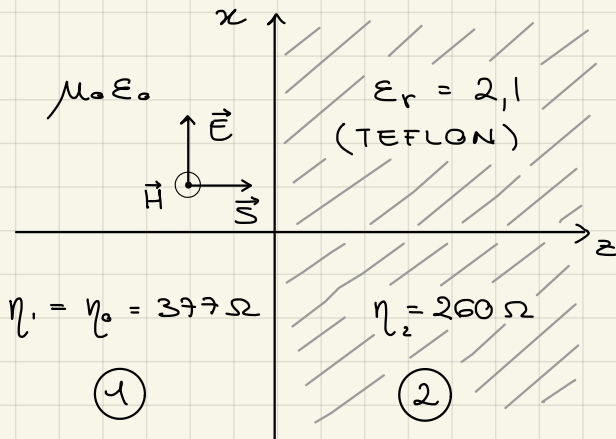 x
μ₀ε₀
εr = 2,1
(TEFLON)
E⃗
H⃗
S⃗
z
η₁ = η₀ = 377 Ω
η₂ = 260 Ω
1
2